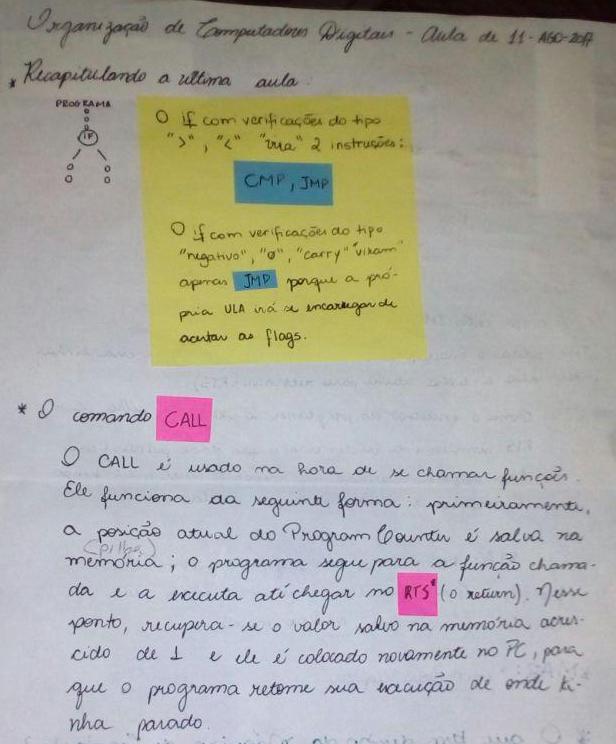 Organização de Computadores Digitais - Aula de 11-AGO-2017
* Recapitulando a ultima aula:
PROGRAMA
IF
O if com verificações do tipo
">", "<" "vira" 2 instruções:
CMP, JMP
O if com verificações do tipo
"negativo", "0", "carry" "viram"
apenas JMP porque a pró-
pria ULA irá se encarregar de
acertar as flags.
* O comando CALL
O CALL é usado na hora de se chamar funções.
Ele funciona da seguinte forma: primeiramente,
a posição atual do Program Counter é salva na
(pilha)
memória; o programa segue para a função chama-
da e a executa até chegar no RTS* (o return). Nesse
ponto, recupera-se o valor salvo na memória acres-
cido de 1 e ele é colocado novamente no PC, para
que o programa retome sua execução de onde ti-
nha parado.